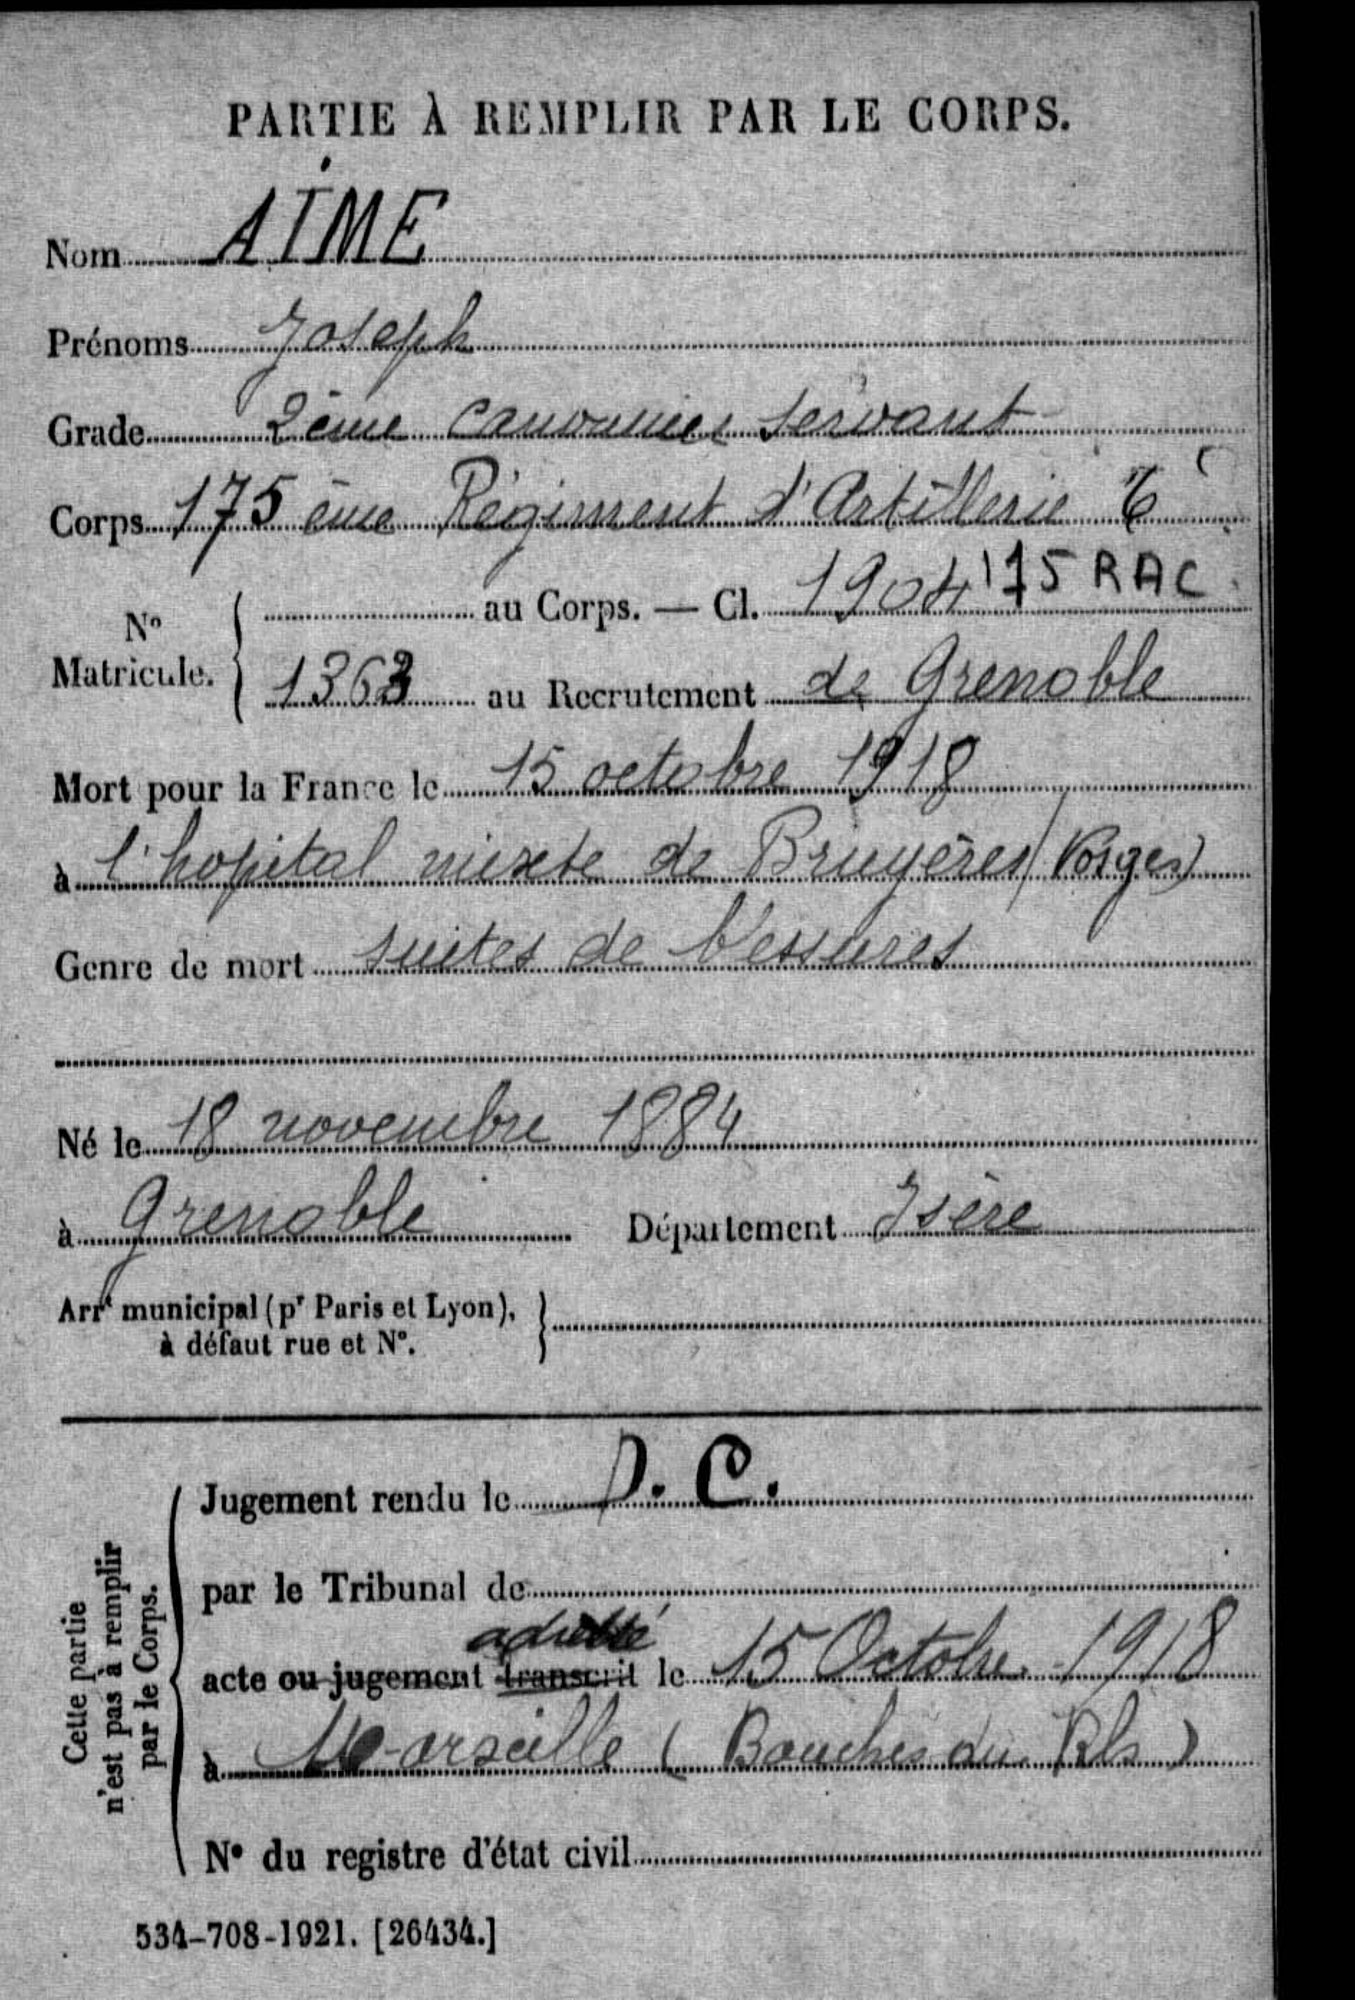 PARTIE À REMPLIR PAR LE CORPS.
Nom AIME
Prénoms Joseph
Grade 2ème canonnier servant
Corps 175 ème Régiment d'Artillerie
N° Matricule. au Corps. — Cl. 1904 175 RAC
1363 au Recrutement de Grenoble
Mort pour la France le 15 octobre 1918
à l'hopital mixte de Bruyères (Vosges)
Genre de mort suites de blessures
Né le 18 novembre 1884
à Grenoble Département Isère
Arrt municipal (pr Paris et Lyon),
à défaut rue et N°.
Cette partie
n'est pas à remplir
par le Corps.
Jugement rendu le D. C.
par le Tribunal de
adressé
acte ou jugement transcrit le 15 Octobre 1918
à Marseille (Bouches du Rh)
N° du registre d'état civil
534-708-1921. [26434.]